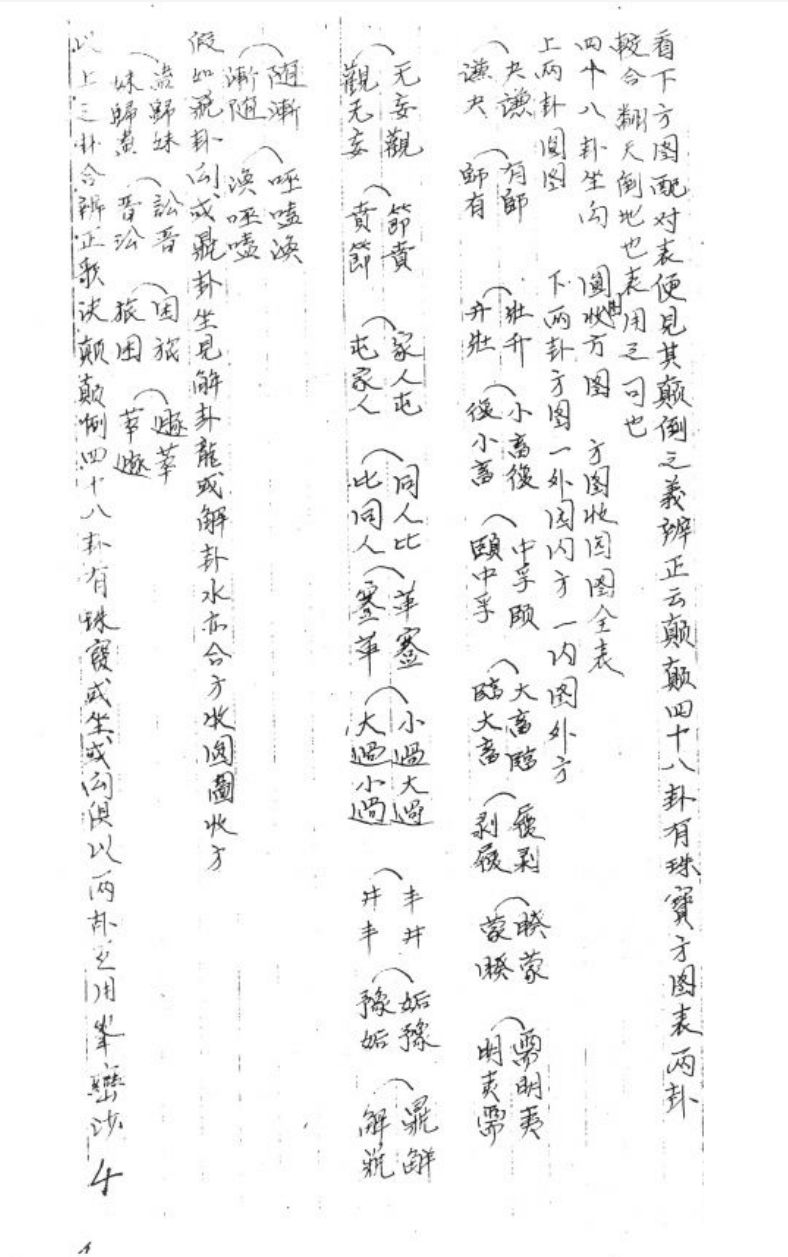 看下方图配对表便見其颠倒之義辨正云颠颠四十八卦有珠寶方图表两卦
較合翻天倒地也表用之可也
四十八卦坐向 圓收方图 方图收园图全表
上两卦圓图 下两卦方图一外园内方一内图外方
夬謙 有師 壯升 小畜復 中孚頤 大畜臨 履剥 睽蒙 需明夷
謙夬 師有 升壯 復小畜 頤中孚 臨大畜 剥履 蒙睽 明夷需
无妄觀 節賁 家人屯 同人比 革蹇 小過大過 丰井 姤豫 鼎解
觀无妄 賁節 屯家人 比同人 蹇革 大過小過 井丰 豫姤 解鼎
随漸 嗑渙
漸随 渙嗑
假如鼎卦向或鼎卦坐見解卦龍或解卦水亦合方收圓圖收方
蠱歸妹 訟晋 困旅 遯萃
妹歸蠱 晋訟 旅困 萃遯
以上之卦合辨正歌决颠颠倒四十八卦有珠寶或坐或向俱以两卦之用峯巒沙
4